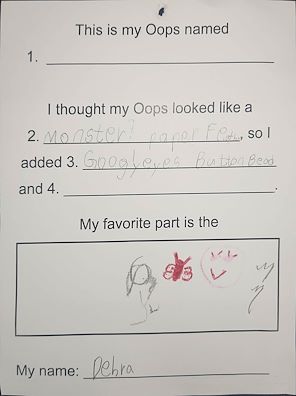 This is my Oops named
1.
I thought my Oops looked like a
2. monster! paper Feather, so I
added 3. Googlyeyes Button Bead
and 4.
My favorite part is the
My name: Debra